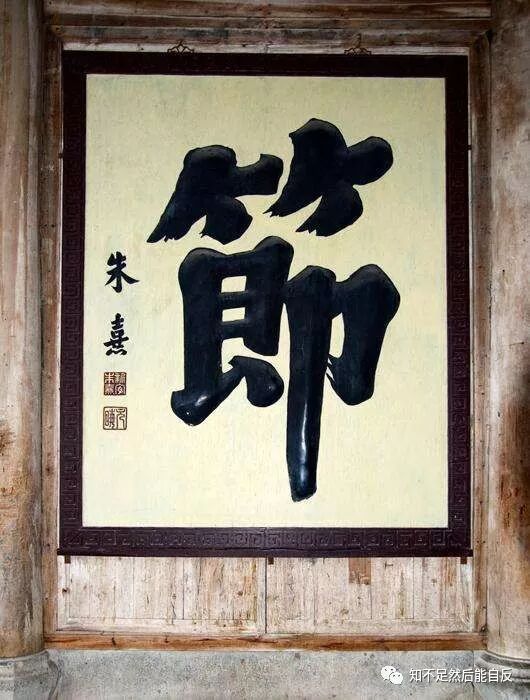 節
朱熹
知不足然后能自反